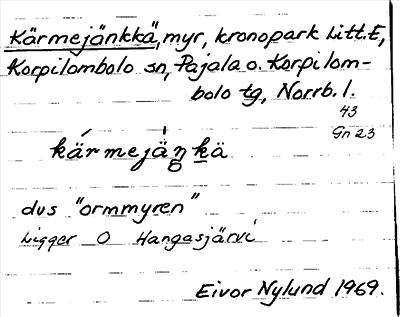 Kärmejänkkä, myr, kronopark Litt. E,
Korpilombolo sn, Pajala o. Korpilom-
bolo tg, Norrb. l.
43
Gn 23
kármejäŋkä
dvs "ormmyren"
Ligger O Hangasjärvi
Eivor Nylund 1969.